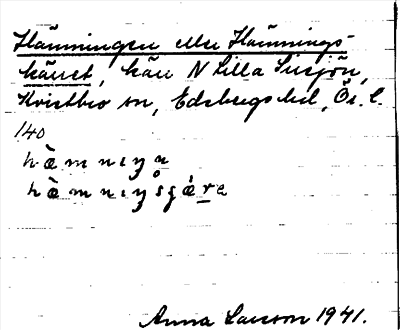 Hämningen eller Hämnings-
kärret, kärr N Lilla Susjön,
Kvistbro sn, Edsbergs hd, Ör. l.
140
hàmnıŋn
hàmnıŋsçǽrə
Anna Larsson 1941.